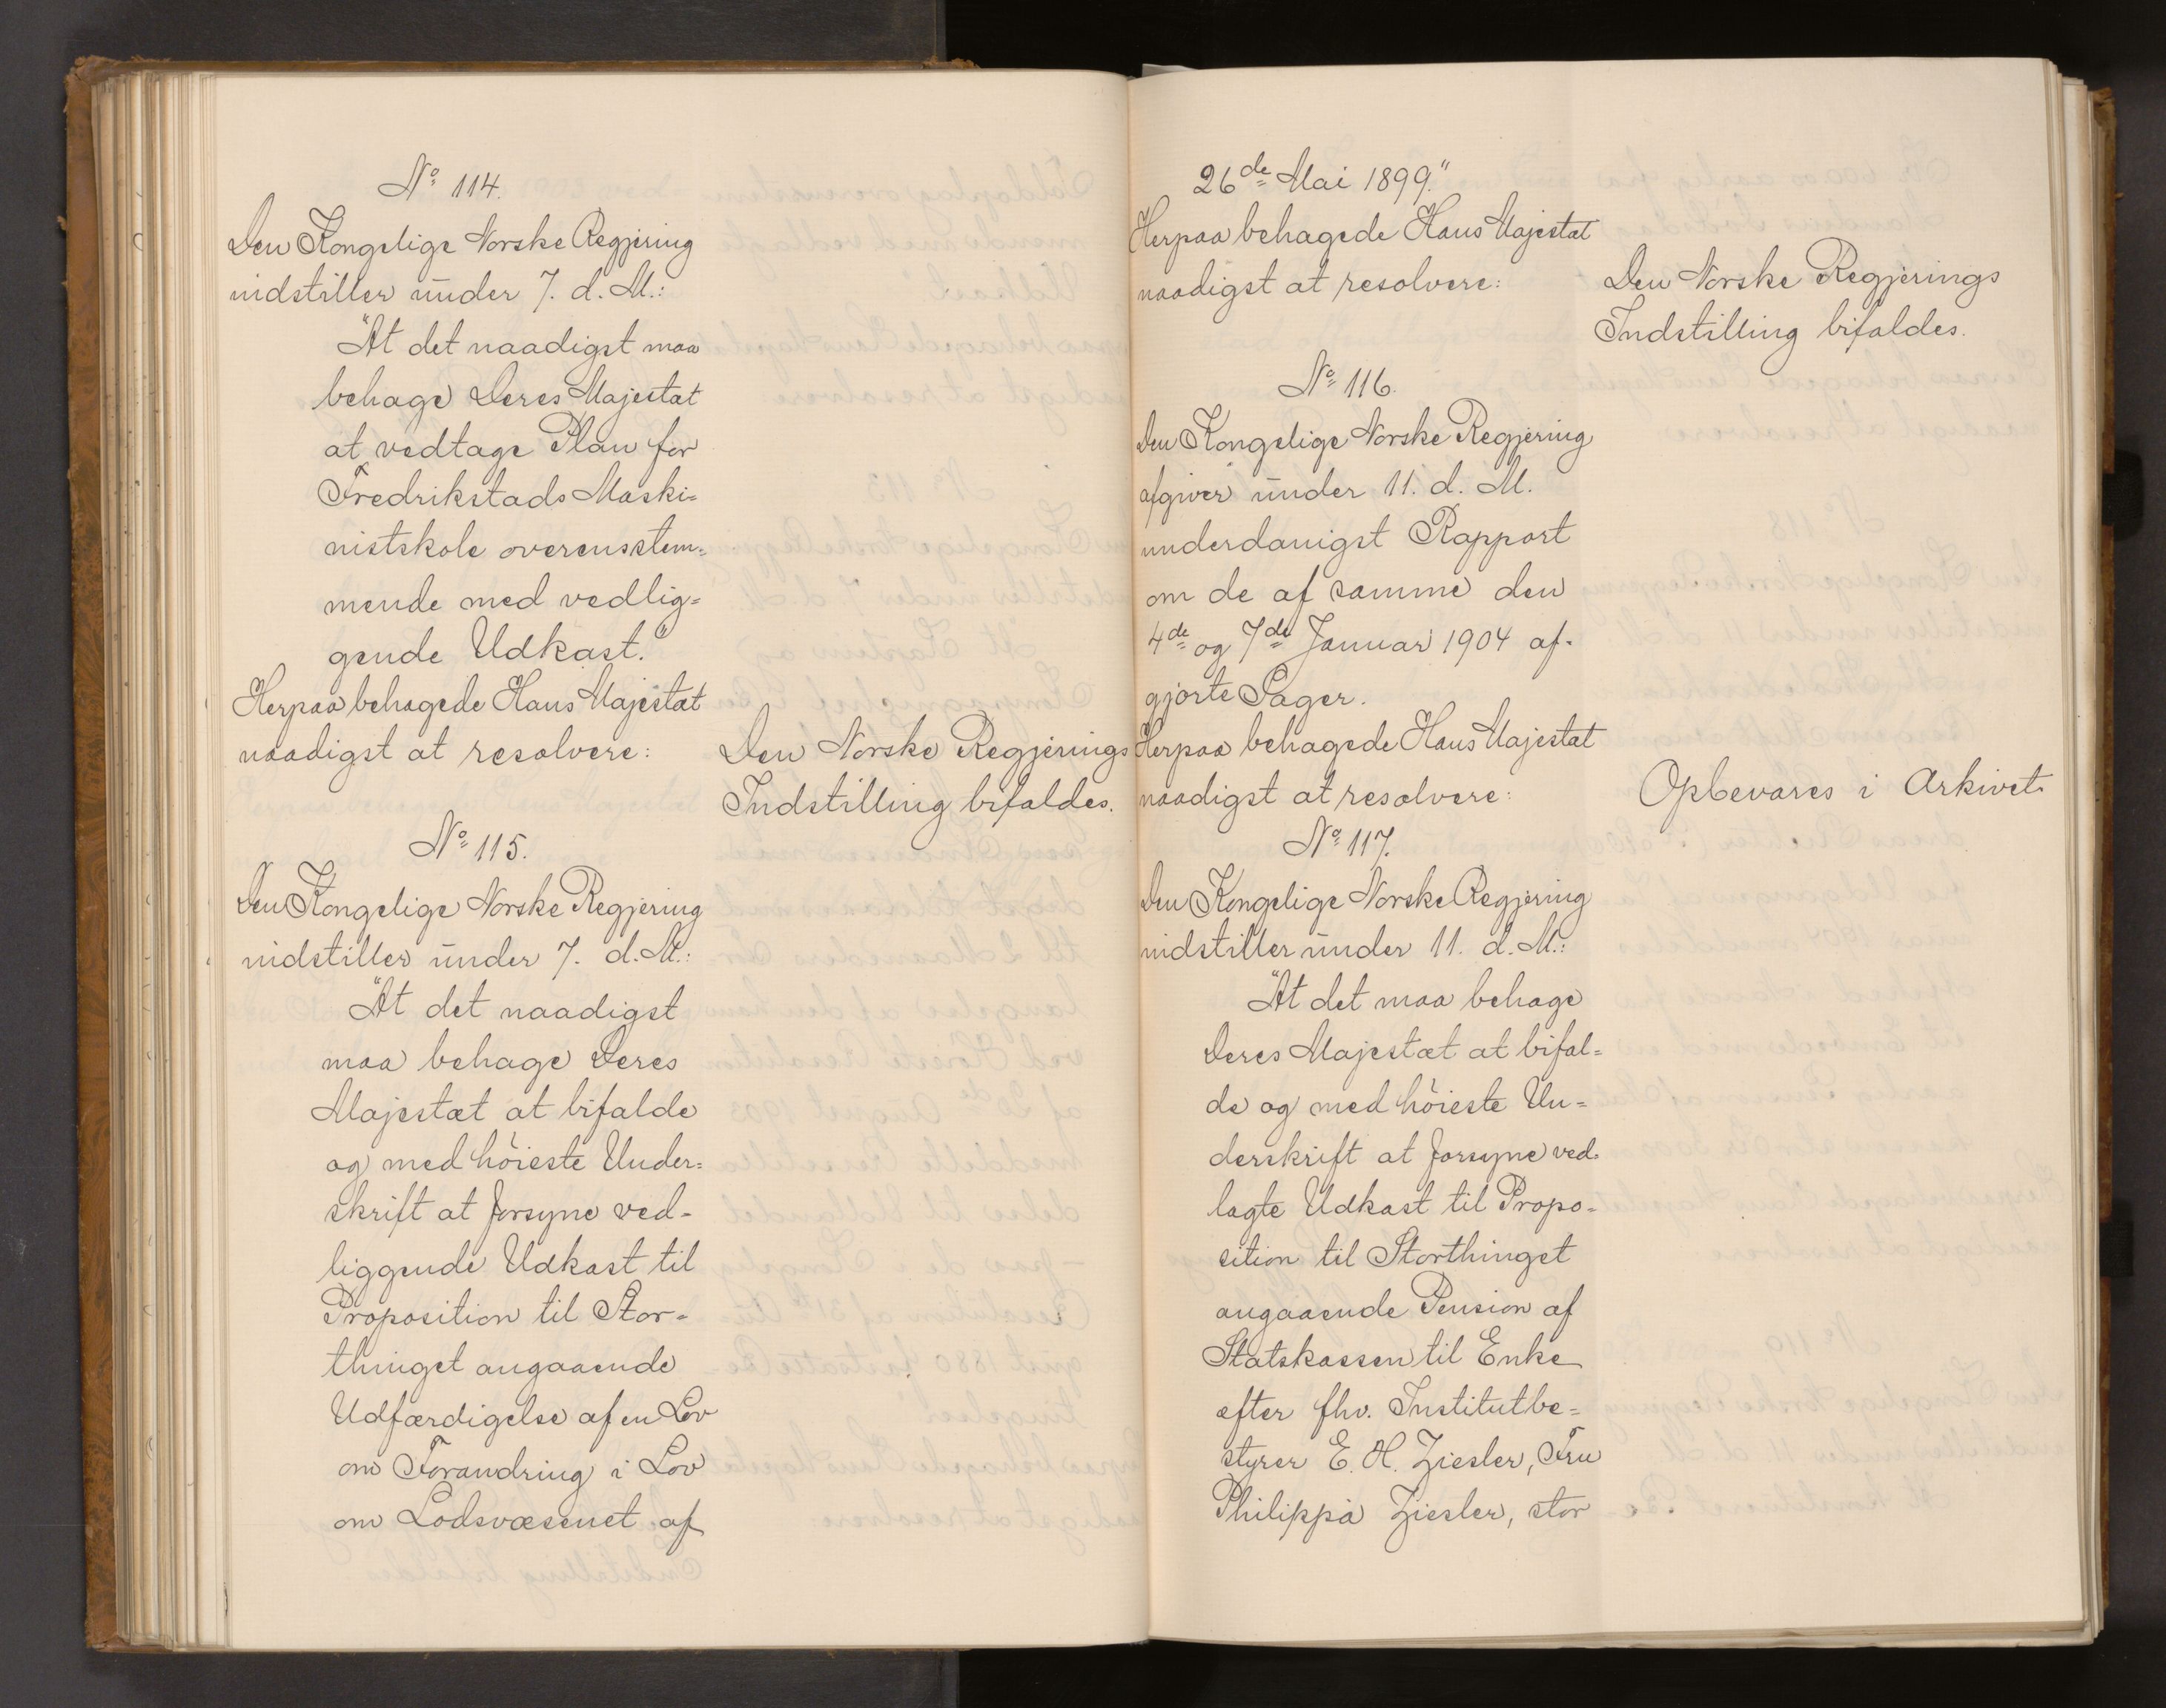 No 114.
Den Kongelige Norske Regjering
indstiller under 7. d. M.:
"At det naadigst maa
behage Deres Majestæt
at vedtage Plan for
Fredrikstads Maski=
nistskole overensstem=
mende med vedlig=
gende Udkast."
Herpaa behagede Hans Majestæt
naadigst at resolvere:
Den Norske Regjerings
Indstilling bifaldes.
No 115.
Den Kongelige Norske Regjering
indstiller under 7. d. M.:
"At det naadigst
maa behage Deres
Majestæt at bifalde
og med høieste Under=
skrift at forsyne ved-
liggende Udkast til
Proposition til Stor-
thinget angaaende
Udfærdigelse af en Lov
om Forandring i Lov
om Lodsvæsenet af
26de Mai 1899."
Herpaa behagede Hans Majestæt
naadigst at resolvere:
Den Norske Regjerings
Indstilling bifaldes.
No 116.
Den Kongelige Norske Regjering
afgiver under 11. d. M.
underdanigst Rapport
om de af samme den
4de og 7de Januar 1904 af-
gjorte Sager.
Herpaa behagede Hans Majestæt
naadigst at resolvere:
Opbevares i Arkivet.
No 117.
Den Kongelige Norske Regjering
indstiller under 11. d. M.:
"At det maa behage
Deres Majestæt at bifal=
de og med høieste Un=
derskrift at forsyne ved-
lagte Udkast til Propo-
sition til Storthinget
angaaende Pension af
Statskassen til Enke
efter fhv. Institutbe=
styrer E. H. Ziesler, Fru
Philippa Ziesler, stor